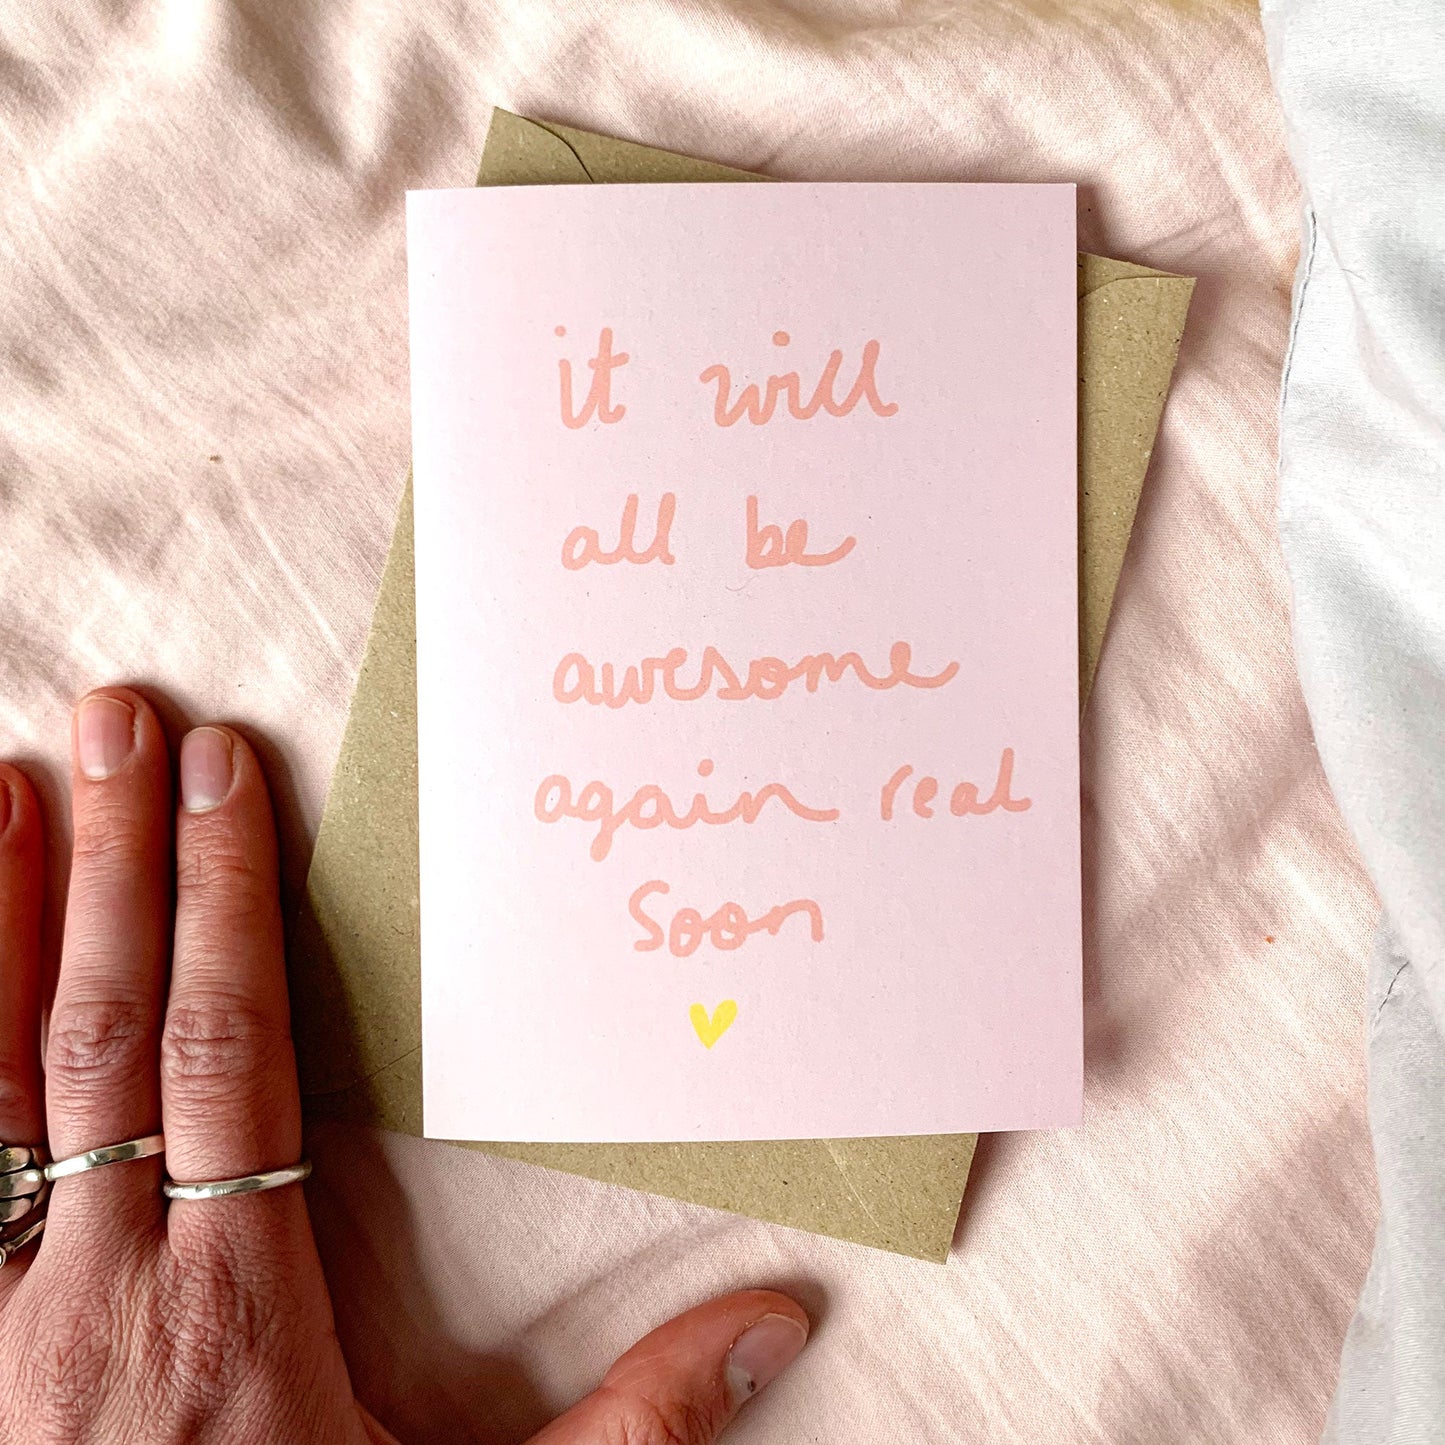 it will
all be
awesome
again real
soon